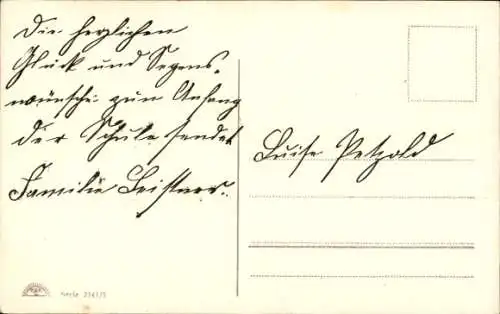 Die herzlichen
Glück und Segens-
wünsche zum Anfang
der Schule sendet
Familie Leistner.
Luise Petzold